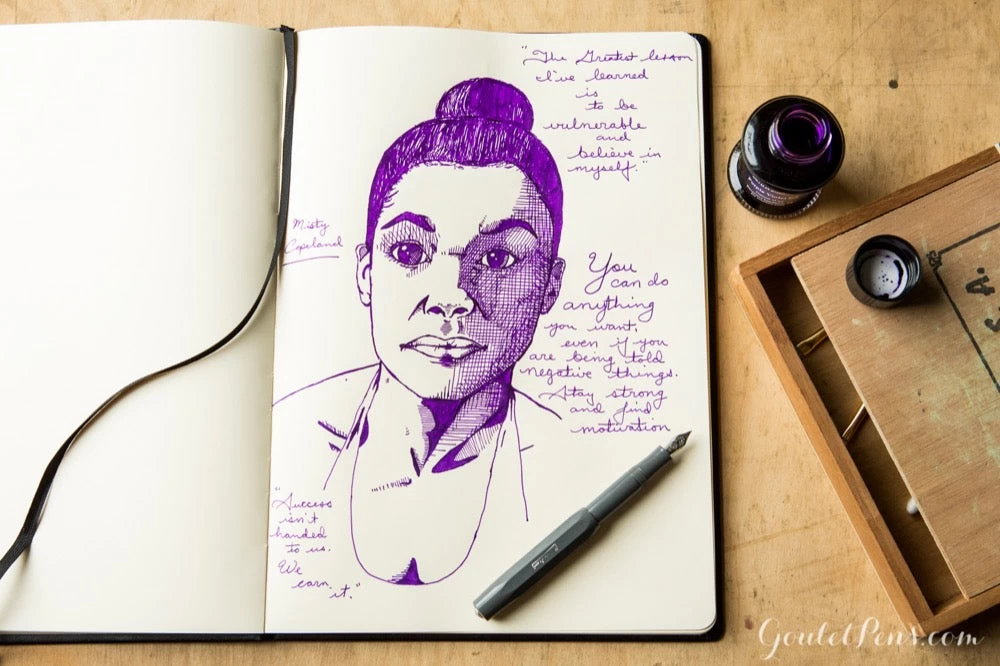 "The Greatest lesson
I've learned
is
to be
vulnerable
and
believe in
myself."
Misty
Copeland
You
can do
anything
you want,
even if you
are being told
negative things.
Stay strong
and find
motivation
"Success
isn't
handed
to us.
We
earn
it."
A.
GouletPens.com